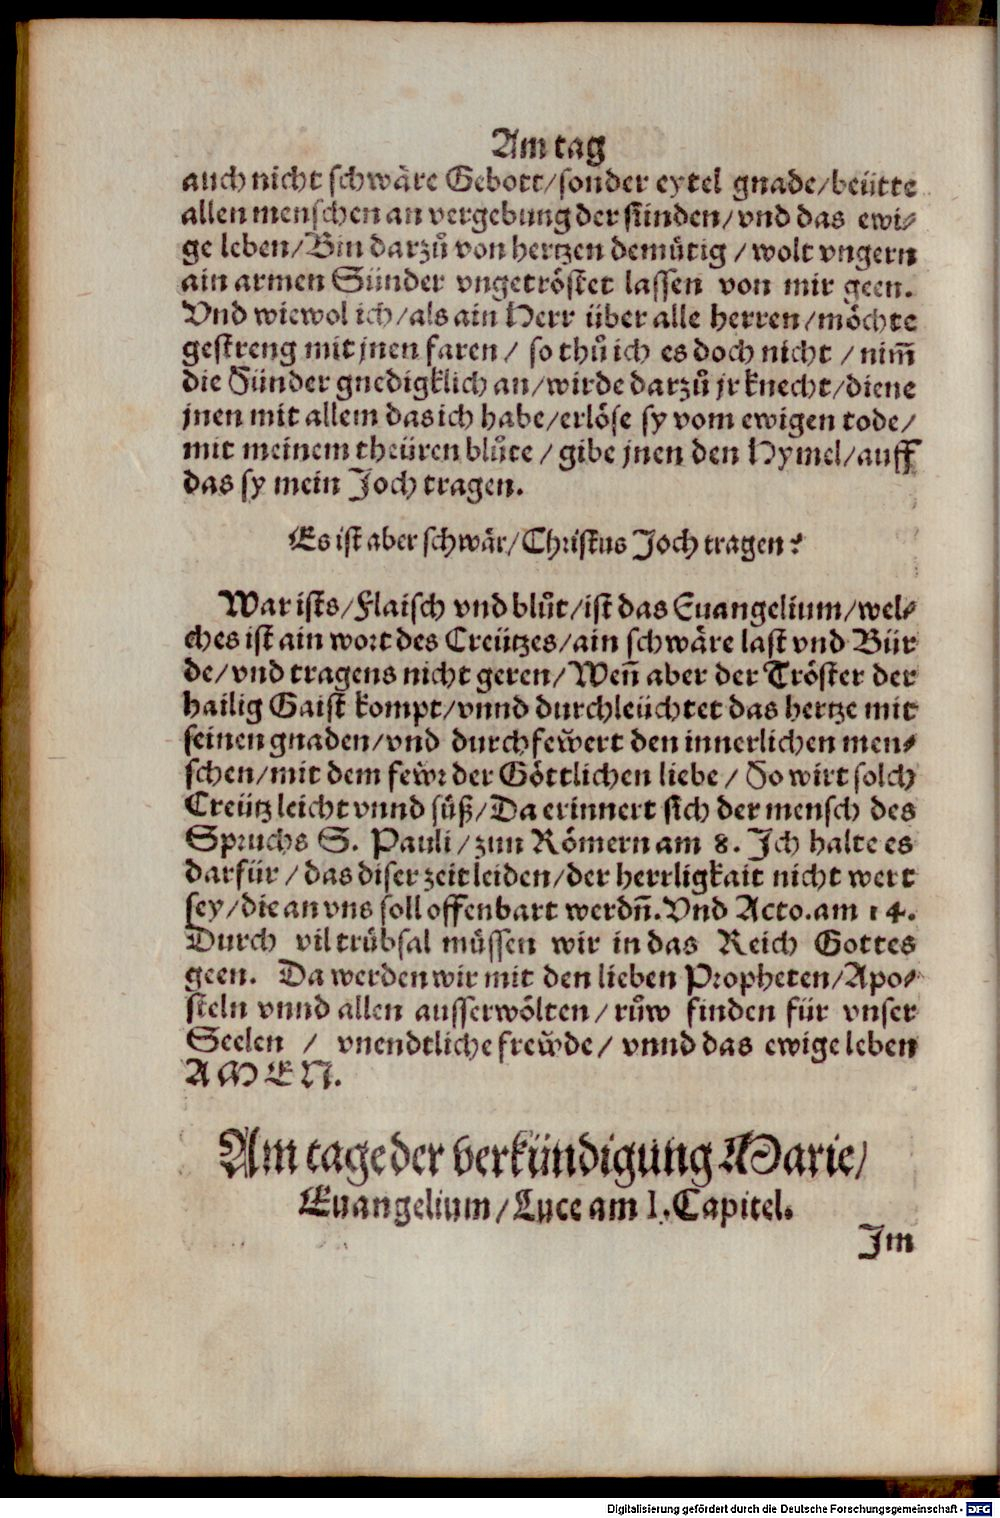 Am tag
auch nicht schwäre Gebott/sonder eytel gnade/beütte
allen menschen an vergebung der sünden/vnd das ewi-
ge leben/Bin darzů von hertzen demütig/wolt vngern
ain armen Sünder vngetröstet lassen von mir geen.
Vnd wiewol ich/als ain Herr über alle herren/möchte
gestreng mit jnen faren/ so thů ich es doch nicht/nim̄
die Sünder gnedigklich an/wirde darzů jr knecht/diene
jnen mit allem das ich habe/erlöse sy vom ewigen tode/
mit meinem theüren blůte/gibe jnen den Hymel/auff
das sy mein Joch tragen.
Es ist aber schwär/Christus Joch tragen?
War ists/Flaisch vnd blůt/ist das Euangelium/wel-
ches ist ain wort des Creützes/ain schwäre last vnd Bür
de/vnd tragens nicht geren/Wen̄ aber der Tröster der
hailig Gaist kompt/vnnd durchleüchtet das hertze mit
seinen gnaden/vnd durchfewͤert den innerlichen men-
schen/mit dem fewͤr der Göttlichen liebe/ So wirt solch
Creütz leicht vnnd süß/Da erinnert sich der mensch des
Spruchs S. Pauli/zun Römern am 8. Ich halte es
darfür/das diser zeit leiden/der herrligkait nicht wert
sey/die an vns soll offenbart werdn̄.Vnd Acto.am 14.
Durch vil trübsal müssen wir in das Reich Gottes
geen. Da werden wir mit den lieben Propheten/Apo-
steln vnnd allen ausserwölten/růw finden für vnser
Seelen / vnendtliche frewͤde/ vnnd das ewige leben
AMEN.
Am tage der verkündigung Marie/
Euangelium/Luce am 1. Capitel.
Im
Digitalisierung gefördert durch die Deutsche Forschungsgemeinschaft - DFG